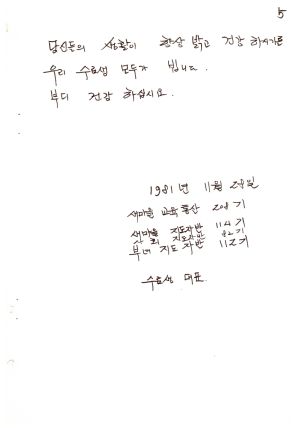 5
당신들의 생활이 항상 밝고 건강 하시기를
우리 수료생 모두가 빕니다.
부디 건강 하십시요.
1981年 11月 28일
새마을 교육 통산 208기
새마을 지도자반 114기
지도자반 82기
부녀 지도자반 112기
수료생 대표